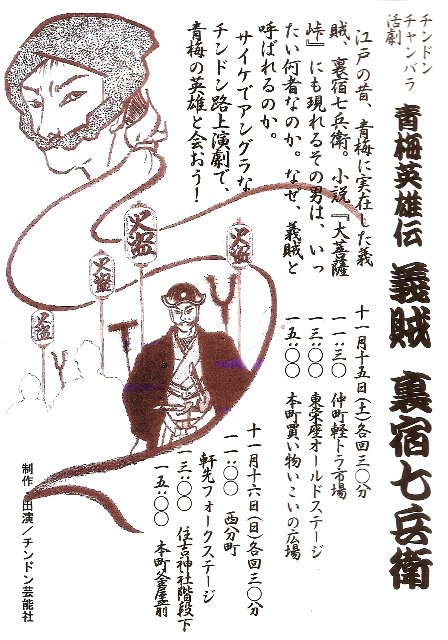 チンドン
チャンバラ
活劇
青梅英雄伝 義賊 裏宿七兵衛
江戸の昔、青梅に実在した義
賊、裏宿七兵衛。小説『大菩薩
峠』にも現れるその男は、いっ
たい何者なのか。なぜ、義賊と
呼ばれるのか。
サイケでアングラな
チンドン路上演劇で、
青梅の英雄と会おう!
十一月十五日(土)各回三〇分
一一:三〇 仲町軽トラ市場
一三:〇〇 東栄座オールドステージ
一五:〇〇 本町買い物いこいの広場
十一月十六日(日)各回三〇分
一一:〇〇 西分町
軒先フォークステージ
一三:〇〇 住吉神社階段下
一五:〇〇 本町釜屋前
火盗
火盗
火盗
火盗
制作・出演/チンドン芸能社